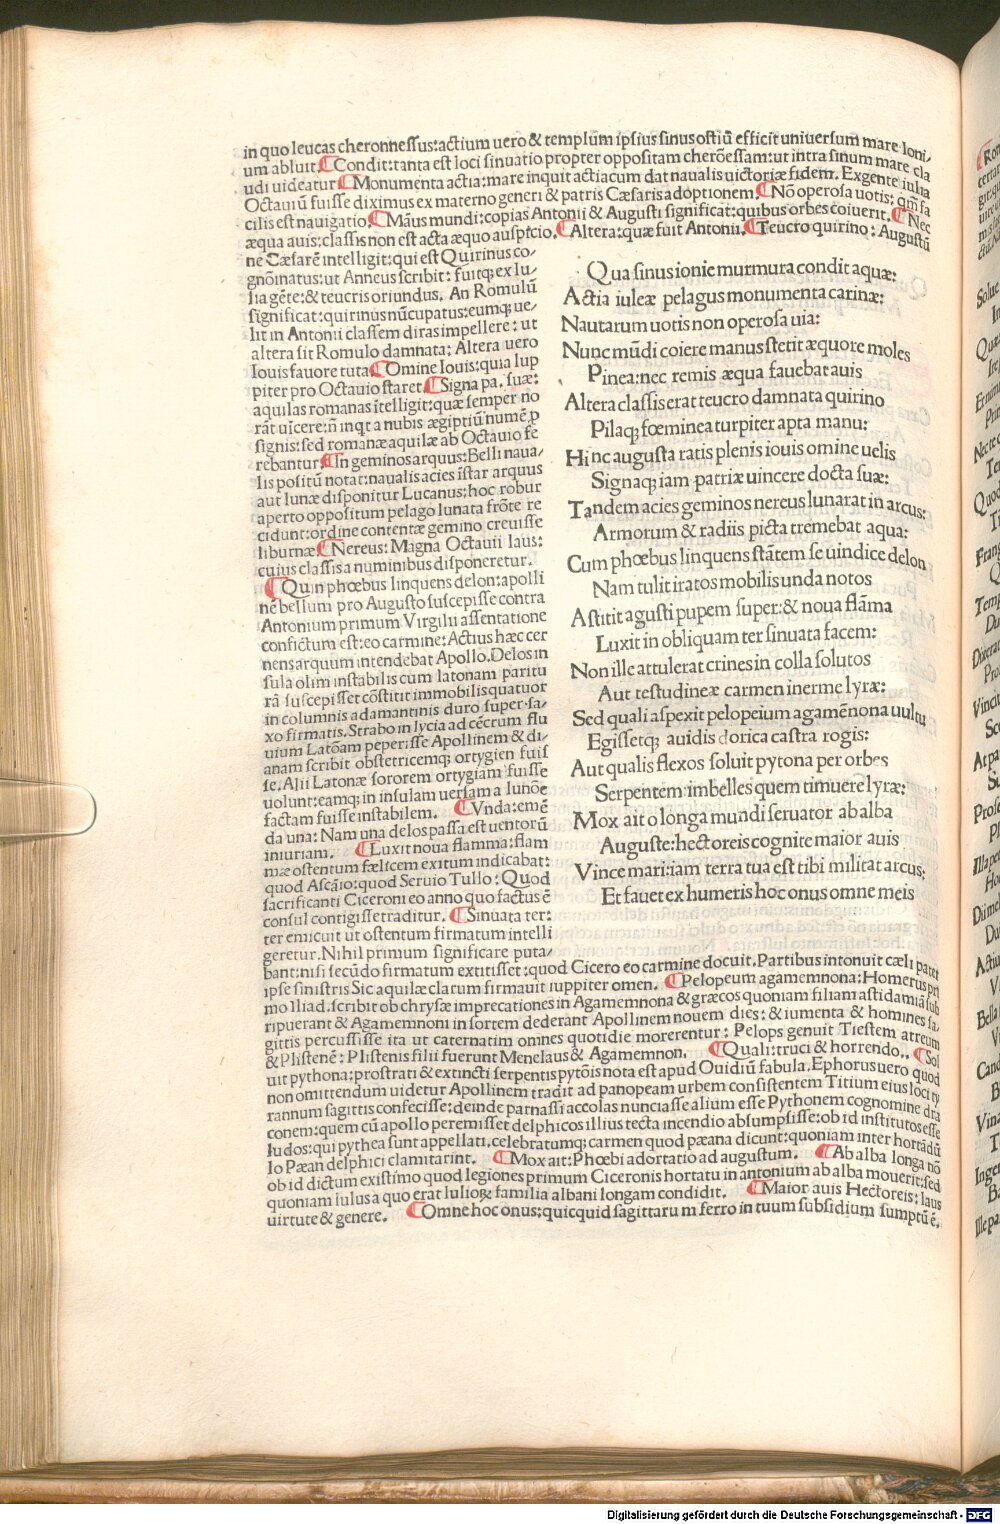 in quo leucas cheronnessus:actium uero & templum ipsius sinus ostiũ efficit uniuersum mare Ioni/
um abluit. ⸿Condit:tanta est loci sinuatio propter oppositam cherõessam:ut intra sinum mare cla
udi uideatur ⸿Monumenta actia:mare inquit actiacum dat naualis uictoriæ fidem. Exgente iulia
Octauiũ fuisse diximus ex materno generi & patris Cæsaris adoptionem ⸿Nõ operosa uotis: qm̃ fa
cilis est nauigatio. ⸿Mãus mundi:copias Antonii & Augusti significat:quibus orbes coiuerit. ⸿Nec
æqua auis:classis non est acta æquo auspicio. ⸿Altera:quæ fuit Antonii. ⸿Teucro quirino: Augustũ
ne Cæsarẽ intelligit:qui est Quirinus co/
gnõinatus:ut Anneus scribit: fuitqꝫ ex Iu/
lia gẽte:& teucris oriundus. An Romulũ
significat:quirinus nũcupatus:eumqꝫ ue/
lit in Antonii classem diras impellere: ut
altera sit Romulo damnata: Altera uero
Iouis fauore tuta ⸿Omine Iouis:quia Iup
piter pro Octauio staret. ⸿Signa pa. suæ:
aquilas romanas ĩtelligit:quæ semper no
rãt uĩcere:ñ inqt a nubis ægiptiũ numẽ p
signis:sed romanæ aquilæ ab Octauio fe
rebantur. ⸿In geminos arquus:Belli naua/
lis positũ notat:naualis acies ĩstar arquus
aut lunæ disponitur Lucanus:hoc robur
aperto oppositum pelago lunata frõte re
cidunt:ordine contentæ gemino creuisse
liburnæ ⸿Nereus: Magna Octauii laus:
cuius classis a numinibus disponeretur.
⸿Quin phœbus linquens delon:apolli
nẽ bellum pro Augusto suscepisse contra
Antonium primum Virgilii assentatione
confictum est:eo carmine:Actius hæc cer
nens arquum intendebat Apollo.Delos in
sula olim instabilis cum latonam paritu
rã suscepisset cõstitit immobilis quatuor
in columnis adamantinis duro super sa/
xo firmatis.Strabo in lycia ad cẽtrum flu
uium Latõam peperisse Apollinem & di/
anam scribit obstetricemqꝫ ortygien fuis
se.Alii Latonæ sororem ortygiam fuisse
uolunt:eamqꝫ in insulam uersam a Iunõe
factam fuisse instabilem. ⸿Vnda:emẽ
da una: Nam una delos passa est uentorũ
iniuriam. ⸿Luxit noua flamma:flam
mæ ostentum fælicem exitum indicabat:
quod Ascãio:quod Seruio Tullo: Quod
sacrificanti Ciceroni eo anno quo factus ẽ
consul contigisse traditur. ⸿Sinuata ter:
ter emicuit ut ostentum firmatum intelli
geretur.Nihil primum significare puta/
bant:nisi secũdo firmatum extitisset:quod Cicero eo carmine docuit.Partibus intonuit cæli patet
ipse sinistris Sic aquilæ clarum firmauit iuppiter omen. ⸿Pelopeum agamemnona:Homerus pri
mo Iliad.scribit ob chrysæ imprecationes in Agamemnona & græcos quoniam filiam asti damiã sub
ripuerant & Agamemnoni in sortem dederant Apollinem nouem dies: & iumenta & homines sa/
gittis percussisse ita ut caternatim omnes quotidie morerentur: Pelops genuit Tiestem atreum
& Plistenẽ: Plistenis filii fuerunt Menelaus & Agamemnon. ⸿Quali:truci & horrendo.. ⸿Sol
uit pythona:prostrati & extincti serpentis pytõis nota est apud Ouidiũ fabula.Ephorus uero quod
non omittendum uidetur Apollinem tradit ad panopeam urbem consistentem Titium eius loci ty
rannum sagittis confecisse:deinde parnassi accolas nunciasse alium esse Pythonem cognomine dra
conem:quem cũ apollo peremisset delphicos illius tecta incendio absumpsisse:ob id institutos esse
ludos:qui pythea sunt appellati.celebratumqꝫ carmen quod pæana dicunt:quoniam inter hortãdũ
Io Pæan delphici clamitarint. ⸿Mox ait: Phœbi adortatio ad augustum. ⸿Ab alba longa nõ
ob id dictum existimo quod legiones primum Ciceronis hortatu in antonium ab alba mouerit:sed
quoniam iulus a quo erat Iulioꝝ familia albani longam condidit. ⸿Maior auis Hectoreis: laus
uirtute & genere. ⸿Omne hoc onus:quicquid sagittaru m ferro in tuum subsidium sumptũ ẽ.
Qua sinus ionie murmura condit aquæ:
Actia iuleæ pelagus monumenta carinæ:
Nautarum uotis non operosa uia:
Nunc mũdi coiere manus stetit æquore moles
Pinea:nec remis æqua fauebat auis
Altera classis erat teucro damnata quirino
Pilaqꝫ fœminea turpiter apta manu:
Hinc augusta ratis plenis iouis omine uelis
Signaqꝫ iam patriæ uincere docta suæ:
Tandem acies geminos nereus lunarat in arcus:
Armorum & radiis picta tremebat aqua:
Cum phœbus linquens stãtem se uindice delon
Nam tulit iratos mobilis unda notos
Astitit agusti pupem super:& noua flãma
Luxit in obliquam ter sinuata facem:
Non ille attulerat crines in colla solutos
Aut testudineæ carmen inerme lyræ:
Sed quali aspexit pelopeium agamẽnona uultu
Egissetqꝫ auidis dorica castra rogis:
Aut qualis flexos soluit pytona per orbes
Serpentem imbelles quem timuere lyræ:
Mox ait o longa mundi seruator ab alba
Auguste:hectoreis cognite maior auis
Vince mari:iam terra tua est tibi militat arcus:
Et fauet ex humeris hoc onus omne meis
Digitalisierung gefördert durch die Deutsche Forschungsgemeinschaft - DFG